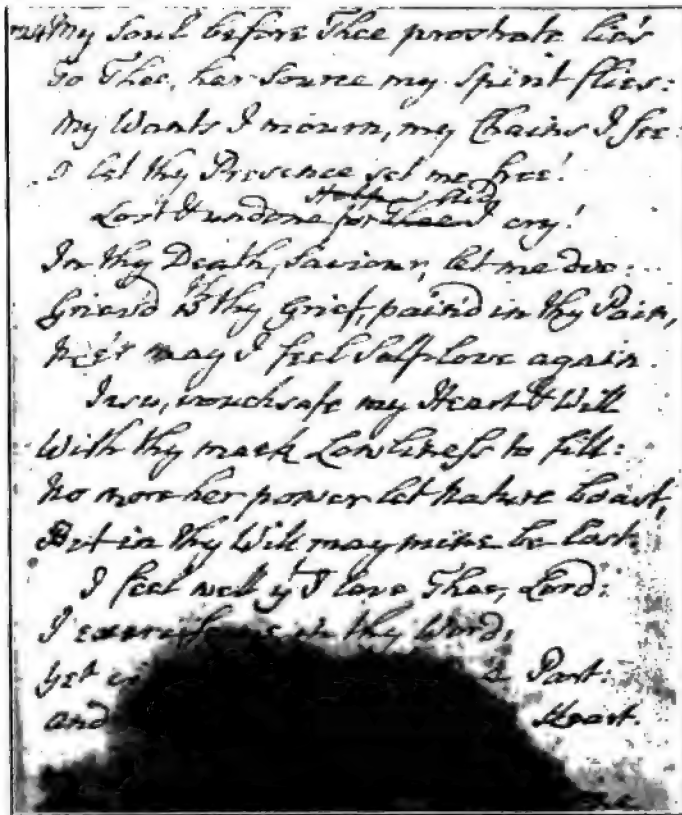 My Soul before Thee prostrate lies
To Thee, her Source my Spirit flies:
My Wants I mourn, my Chains I see:
O let thy Presence set me free!
Lost & undone for Thee I cry!
In thy Death, Saviour, let me die:
Griev'd wth thy Grief, pain'd in thy Pain,
Ne'er may I feel Self-love again.
Jesu, vouchsafe my Heart & Will
With thy meek Lowliness to fill:
No more her power let Nature boast,
But in thy Will may mine be lost.
I feel well yt I love Thee, Lord:
I exercise me in thy Word,
Yet Part:
and Heart.